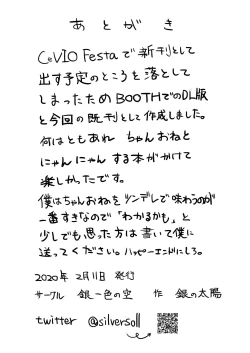 あとがき
CeVIO Festaで新刊として
出す予定のところを落として
しまったためBOOTHでのDL版
と今回の既刊として作成しました。
何はともあれ ちゃんおねと
にゃんにゃん する本がかけて
楽しかったです。
僕はちゃんおねをツンデレで味わうのが
一番すきなので「わかるかも」と
少しでも思った方は書いて僕に
送ってください。ハッピーエンドにしろ。
2020年 2月11日 発行
サークル 銀一色の空 作 銀の太陽
twitter @silversoll